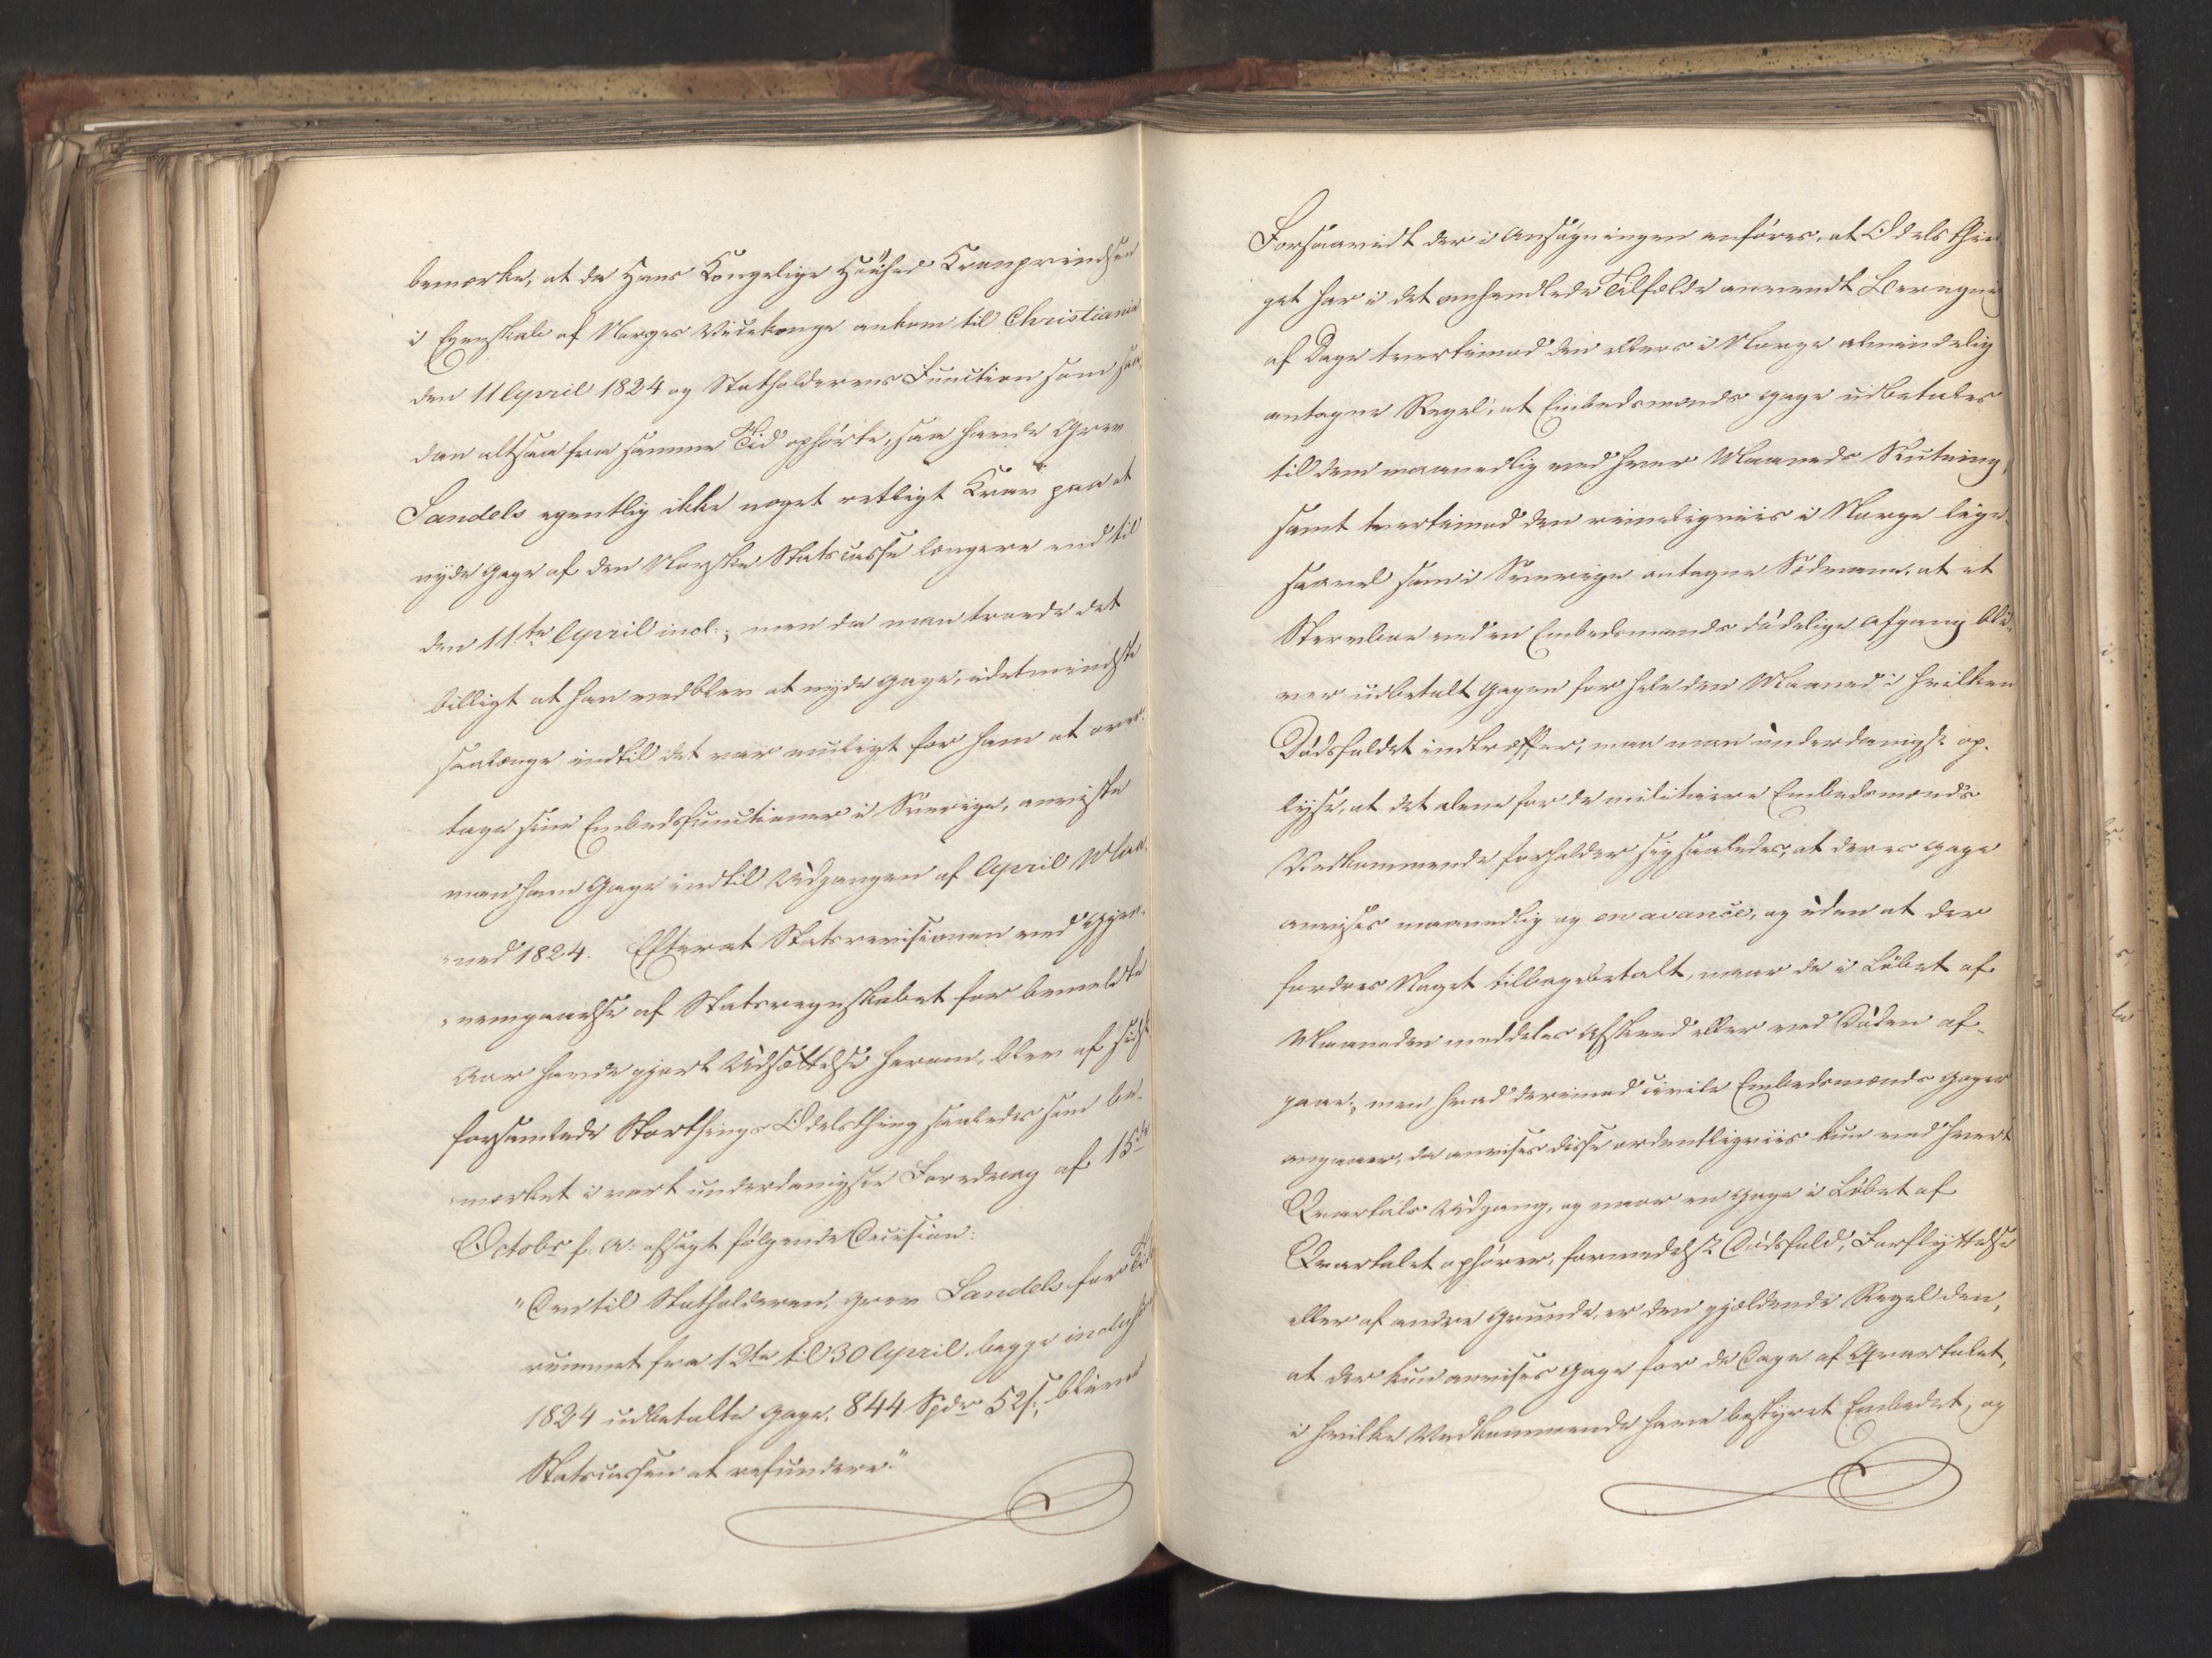 bemærke, at da Hans Kongelige Høihed Kronprindsen
i Egenskab af Norges Vicekonge ankom til Christiania
den 11 April 1824 og Statholderens Function som saa-
dan altsaa fra samme Tid ophørte, saa havde Grev
Sandels egentlig ikke noget retligt Krav paa at
nyde Gage af den Norske Statscasse længere end til
den 11te April incl:; men da man troede det
billigt at han vedblev at nyde Gage, idetmindste
saalænge indtil det var muligt for ham at over-
tage sine Embedsfunctioner i Sverige, anviiste
man ham Gage indtil Udgangen af April Maa-
ned 1824. Efterat Statsrevisionen ved Gjen-
nemgaaelse af Statsregnskabet for bemeldte
Aar havde gjort Udsættelse herom, blev af sidst
forsamlede Storthings Odelsthing saaledes som be-
mærket i vort underdanigste Foredrag af 15de
Octobr f: A: afsagt følgende Decision:
"Den til Statholderen, Grev Sandels for Tids-
rummet fra 12te til 30 April, begge inclusive
1824 udbetalte Gage, 844 Spdr 52 s:, bliver
Statscassen at refundere."
Forsaavidt der i Ansøgningen anføres, at Odelsthin-
get har i det omhandlede Tilfælde anvendt Beregning
af Dage tvertimod den ellers i Norge almindelig
antagne Regel, at Embedsmænds Gage udbetales
til dem maanedlig ved hver Maaneds Slutning,
samt tvertimod den rimeligviis i Norge lige-
saavel som i Sverrige antagne Sædvane, at et
Sterboe ved en Embedsmands dødelige Afgang bli-
ver udbetalt Gagen for hele den Maaned i hvilken
Dødsfaldet indtræffer, maa man underdanigst op-
lyse, at det alene for de militaire Embedsmænds
Vedkommende forholder sig saaledes, at deres Gage
anvises maanedlig og en avance, og uden at der
fordres Noget tilbagebetalt, naar de i Løbet af
Maaneden meddeles Afskeed eller ved Døden af-
gaae; men hvad derimod civile Embedsmænds Gager
angaaer, da anvises disse ordentligviis kun ved hvert
Qvartals Udgang, og naar en Gage i Løbet af
Qvartalet ophører, formedelst Dødsfald, Forflyttelse
eller af andre Grunde, er den gjældende Regel den,
at der kun anvises Gage for de Dage af Qvartalet,
i hvilke Vedkommende have bestyret Embedet, og